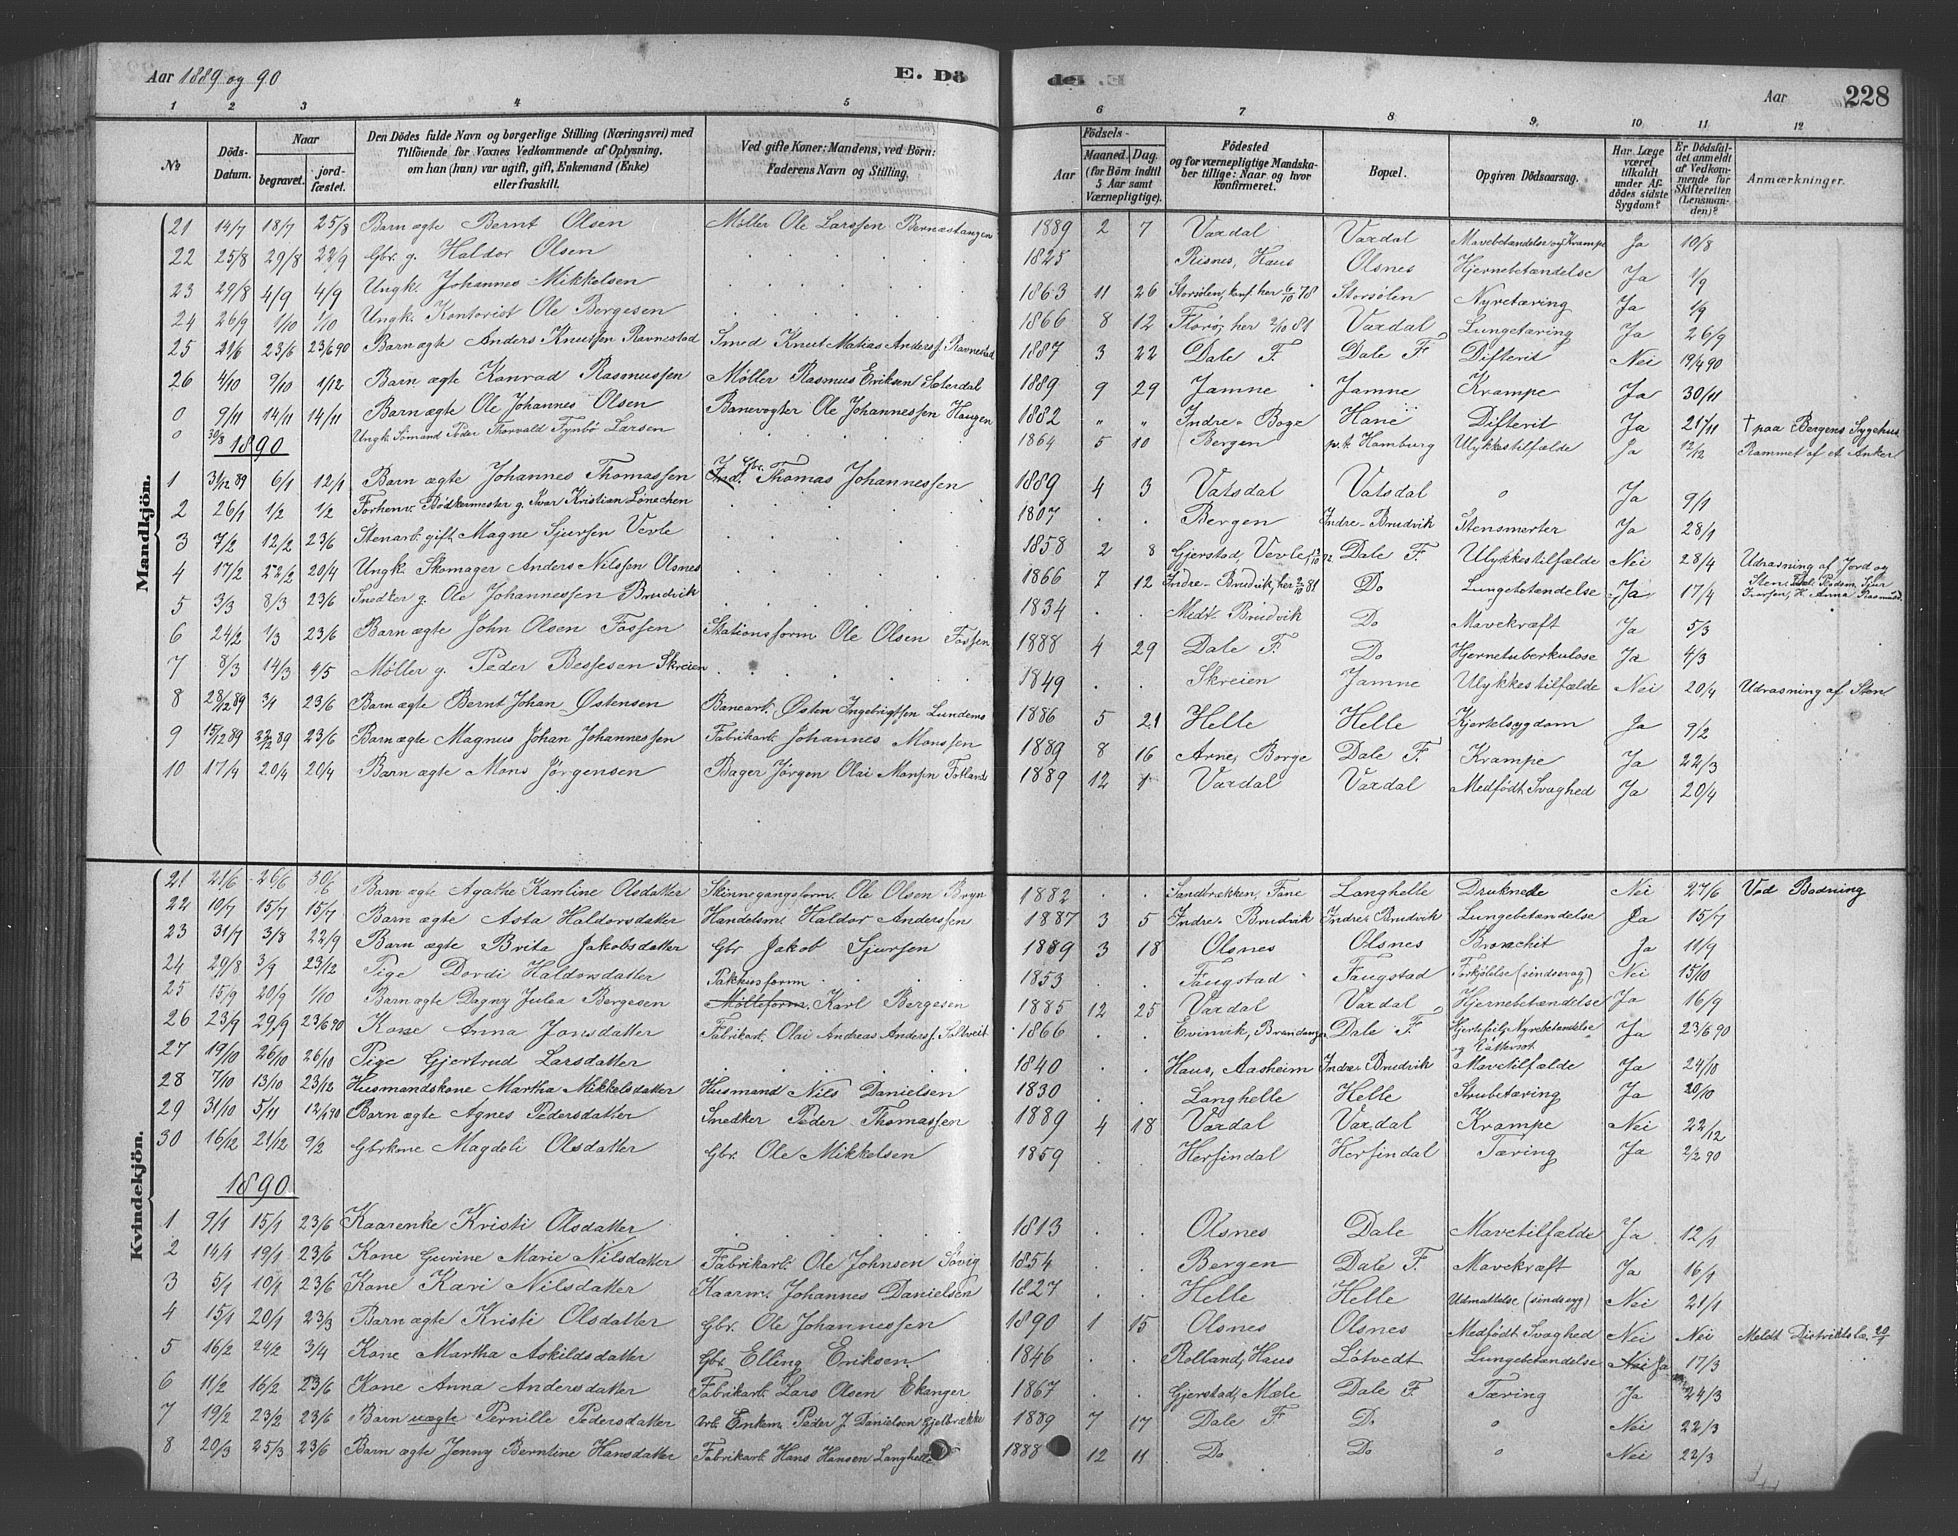 Aar 1889 og 90 E. Dö
de E. Aar 228
1 2 3 4 5 6 7 8 9. 10 11 12
No Döds-Datum. Naar begravet. jordfæstet. Den Dödes fulde Navn og borgerlige Stilling (Næringsvei) med Tilföiende for Voxnes Vedkommende af Oplysning, om han (hun) var ugift, gift, Enkemand (Enke) eller fraskilt. Ved gifte Koner: Mandens, ved Börn: Faderens Navn og Stilling. Födsels- Aar Maaned. Dag. (for Börn indtil 5 Aar samt Værnepligtige). Födested og for værnepligtige Mandskaber tillige: Naar og hvor Konfirmeret. Bopæl. Opgiven Dödsaarsag. Har Læge været tilkaldt under Afdödes sidste Sygdom? Er Dödsfaldet anmeldt af Vedkommende for Skifteretten (Lensmanden)? Anmærkninger.
Mandkjön.
21 14/7 18/7 25/8 Barn ægte Bernt Olsen Møller Ole Larssen Bernæstangen 1889 2 7 Vaxdal Vaxdal Mavebetændelse og Krampe Ja 10/8
22 25/8 29/8 22/9 Gbr. g. Haldor Olsen 1825 Risnes, Haus Olsnes Hjernebetændelse Ja 1/9
23 29/8 4/9 4/9 Ungk. Johannes Mikkelsen 1863 11 26 Storsölen, konf. her 6/10 78 Storsölen Nyretæring Ja 1/9
24 26/9 1/10 1/10 Ungk. Kontorist Ole Bergesen 1866 8 12 Florø, her 2/10 81 Vaxdal Lungetæring Ja 26/9
25 21/6 23/6 23/6 90 Barn ægte Anders Knutsen Ravnestad Smed Knut Matias Anderss. Ravnestad 1887 3 22 Dale F. Dale F. Difterit Nei 19/4 90
26 4/10 9/10 1/12 Barn ægte Konrad Rasmussen Møller Rasmus Eriksen Sæterdal 1889 9 29 Jamne Jamne Krampe Ja 30/11
0 9/11 14/11 14/11 Barn ægte Ole Johannes Olsen Banevogter Ole Johannessen Haugen 1882 " " Indre-Boge Hane Difterit Ja 21/11 † paa Bergens Sygehus
0 30/8 Ungk. Sömand Peder Thorvald Fynbö Larsen 1864 5 10 Bergen p.t. Hamburg Ulykkestilfælde Ja 12/12 Rammet af et Anker
1890
1 31/12 89 6/1 12/1 Barn ægte Johannes Thomassen Gbr. Thomas Johannessen 1889 4 3 Vatsdal Vatsdal o Ja 9/1
2 26/1 1/2 1/2 Forhenv. Bödkermester g. Ivar Kristian Lönechen 1807 . . Bergen Indre-Brudvik Stensmerter Ja 28/1
3 7/2 12/2 23/6 Stenarb. gift Magne Sjursen Vevle 1858 2 8 Gjerstad, Vevle, Dale F. Ulykkestilfælde Nei 28/4 Udrasning af Jord og
4 17/2 22/2 20/4 Ungk. Skomager Anders Nilssen Olsnes 1866 7 12 Indre-Brudvik, her 2/10 81 Do Lungebetændelse Ja 17/4 Sten,
5 3/3 8/3 23/6 Snedker g. Ole Johannessen Brudvik 1834 . . Medt. Brudvik Do Mavekræft Ja 5/3
6 24/2 1/3 23/6 Barn ægte John Olsen Fossen Stationsform Ole Olsen Fossen 1888 4 29 Dale F Do Hjernetuberkulose Ja 4/3
7 8/3 14/3 4/5 Møller g. Peder Bessesen Skreien 1849 . . Skreien Jamne Ulykkestilfælde Nei 20/4 Udrasning af Sten
8 28/12 89 3/4 23/6 Barn ægte Bernt Johan Østensen Banearb. Østen Ingebrigtsen Lundems 1886 5 21 Helle Helle Kjertelsygdom Ja 9/2
9 15/12 89 22/12 89 23/6 Barn ægte Magnus Johan Johannessen Fabrikarb. Johannes Monssen 1889 8 16 Arne, Borge Dale F. Krampe Ja 22/3
10 17/4 20/4 20/4 Barn ægte Mons Jørgensen Bager Jørgen Olai Monsen Fotland 1889 12 1 Vaxdal Vaxdal Medfödt Svaghed Ja 20/4
Kvindekjön.
21 21/6 26/6 30/6 Barn ægte Agathe Karoline Olsdatter Skinnegangsform. Ole Olsen Bryn 1882 . . Sandbrekken, Fane Langhelle Druknede Nei 27/6 Ved Badning
22 10/7 15/7 15/7 Barn ægte Asta Haldorsdatter Handelsm. Haldor Anderssen 1887 3 5 Indre-Brudvik Indre-Brudvik Lungebetændelse Ja 15/7
23 31/7 3/8 22/9 Barn ægte Brita Jakobsdatter Gbr Jakob Sjursen 1889 3 18 Olsnes Olsnes Bronchit Ja 11/9
24 29/8 3/9 23/12 Pige Dordi Haldorsdatter 1853 . . Faugstad Faugstad Forkjölelse (sindssvag) Nei 15/10
25 15/9 20/9 1/10 Barn ægte Dagny Julea Bergesen Pakhusform Mölleform. Karl Bergesen 1885 12 25 Vaxdal Vaxdal Hjernebetændelse Ja 16/9
26 23/9 29/9 23/6 90 Kone Anna Jonsdatter Fabrikarb. Olai Andreas Anderss. Saltveit 1866 . . Evinvik, Brandanger Dale F. Hjertefeil, Nyrebetændelse og Vattersot Ja 23/6 90
27 19/10 26/10 26/10 Pige Gjertrud Larsdatter 1840 . . Haus, Aasheim Indre Brudvik Mavetilfælde Ja 24/10
28 7/10 13/10 23/12 Husmandskone Martha Mikkelsdatter Husmand Nils Danielsen 1830 . . Langhelle Helle Strubetæring Ja 20/10
29 31/10 5/11 12/1 90 Barn ægte Agnes Pedersdatter Snedker Peder Thomassen 1889 4 18 Vaxdal Vaxdal Krampe Nei 22/12
30 16/12 21/12 9/2 Gbrkone Magdeli Olsdatter Gbr. Ole Mikkelsen 1859 . . Herfindal Herfindal Tæring Ja 2/2 90
1890
1 9/1 15/1 23/6 Kaarenke Kristi Olsdatter 1813 . . Olsnes Dale Mavetilfælde Ja 12/1
2 14/1 19/1 23/6 Kone Gurine Marie Nilsdatter Fabrikarb. Ole Johnsen Søvig 1854 . . Bergen Dale F. Mavekræft Ja 16/1
3 5/1 10/1 23/6 Kone Kari Nilsdatter Kaarm. Johannes Danielsen 1827 . . Helle Helle Udmattelse (sindssyg) Nei 21/1
4 15/1 20/1 23/3 Barn ægte Kristi Olsdatter Gbr. Ole Johannessen 1890 1 15 Olsnes Olsnes Medfödt Svaghed Nei Nei Meldt Distriktslæ. 20/1
5 16/2 24/2 3/4 Kone Martha Askildsdatter Gbr. Elling Eriksen 1846 . . Rolland, Haus Lötvedt Lungebetændelse Nei Ja 17/3
6 11/2 16/2 23/6 Kone Anna Andersdatter Fabrikarb. Lars Olsen Ekanger 1867 . . Gjerstad, Mæle Dale F Tæring Ja 24/3
7 19/2 23/2 23/6 Barn uægte Pernille Pedersdatter Arb. Enkem. Peder J. Danielsen Gjelbrække 1889 7 17 Dale F Do o Nei 22/3
8 20/3 25/3 23/6 Barn ægte Jenny Berntine Hansdatter Fabrikarb. Hans Hansen Langhelle 1888 12 11 Do Do o Nei 22/3